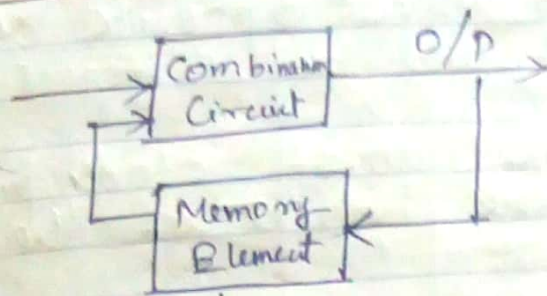 O/P
Combination
Circuit
Memory
Element